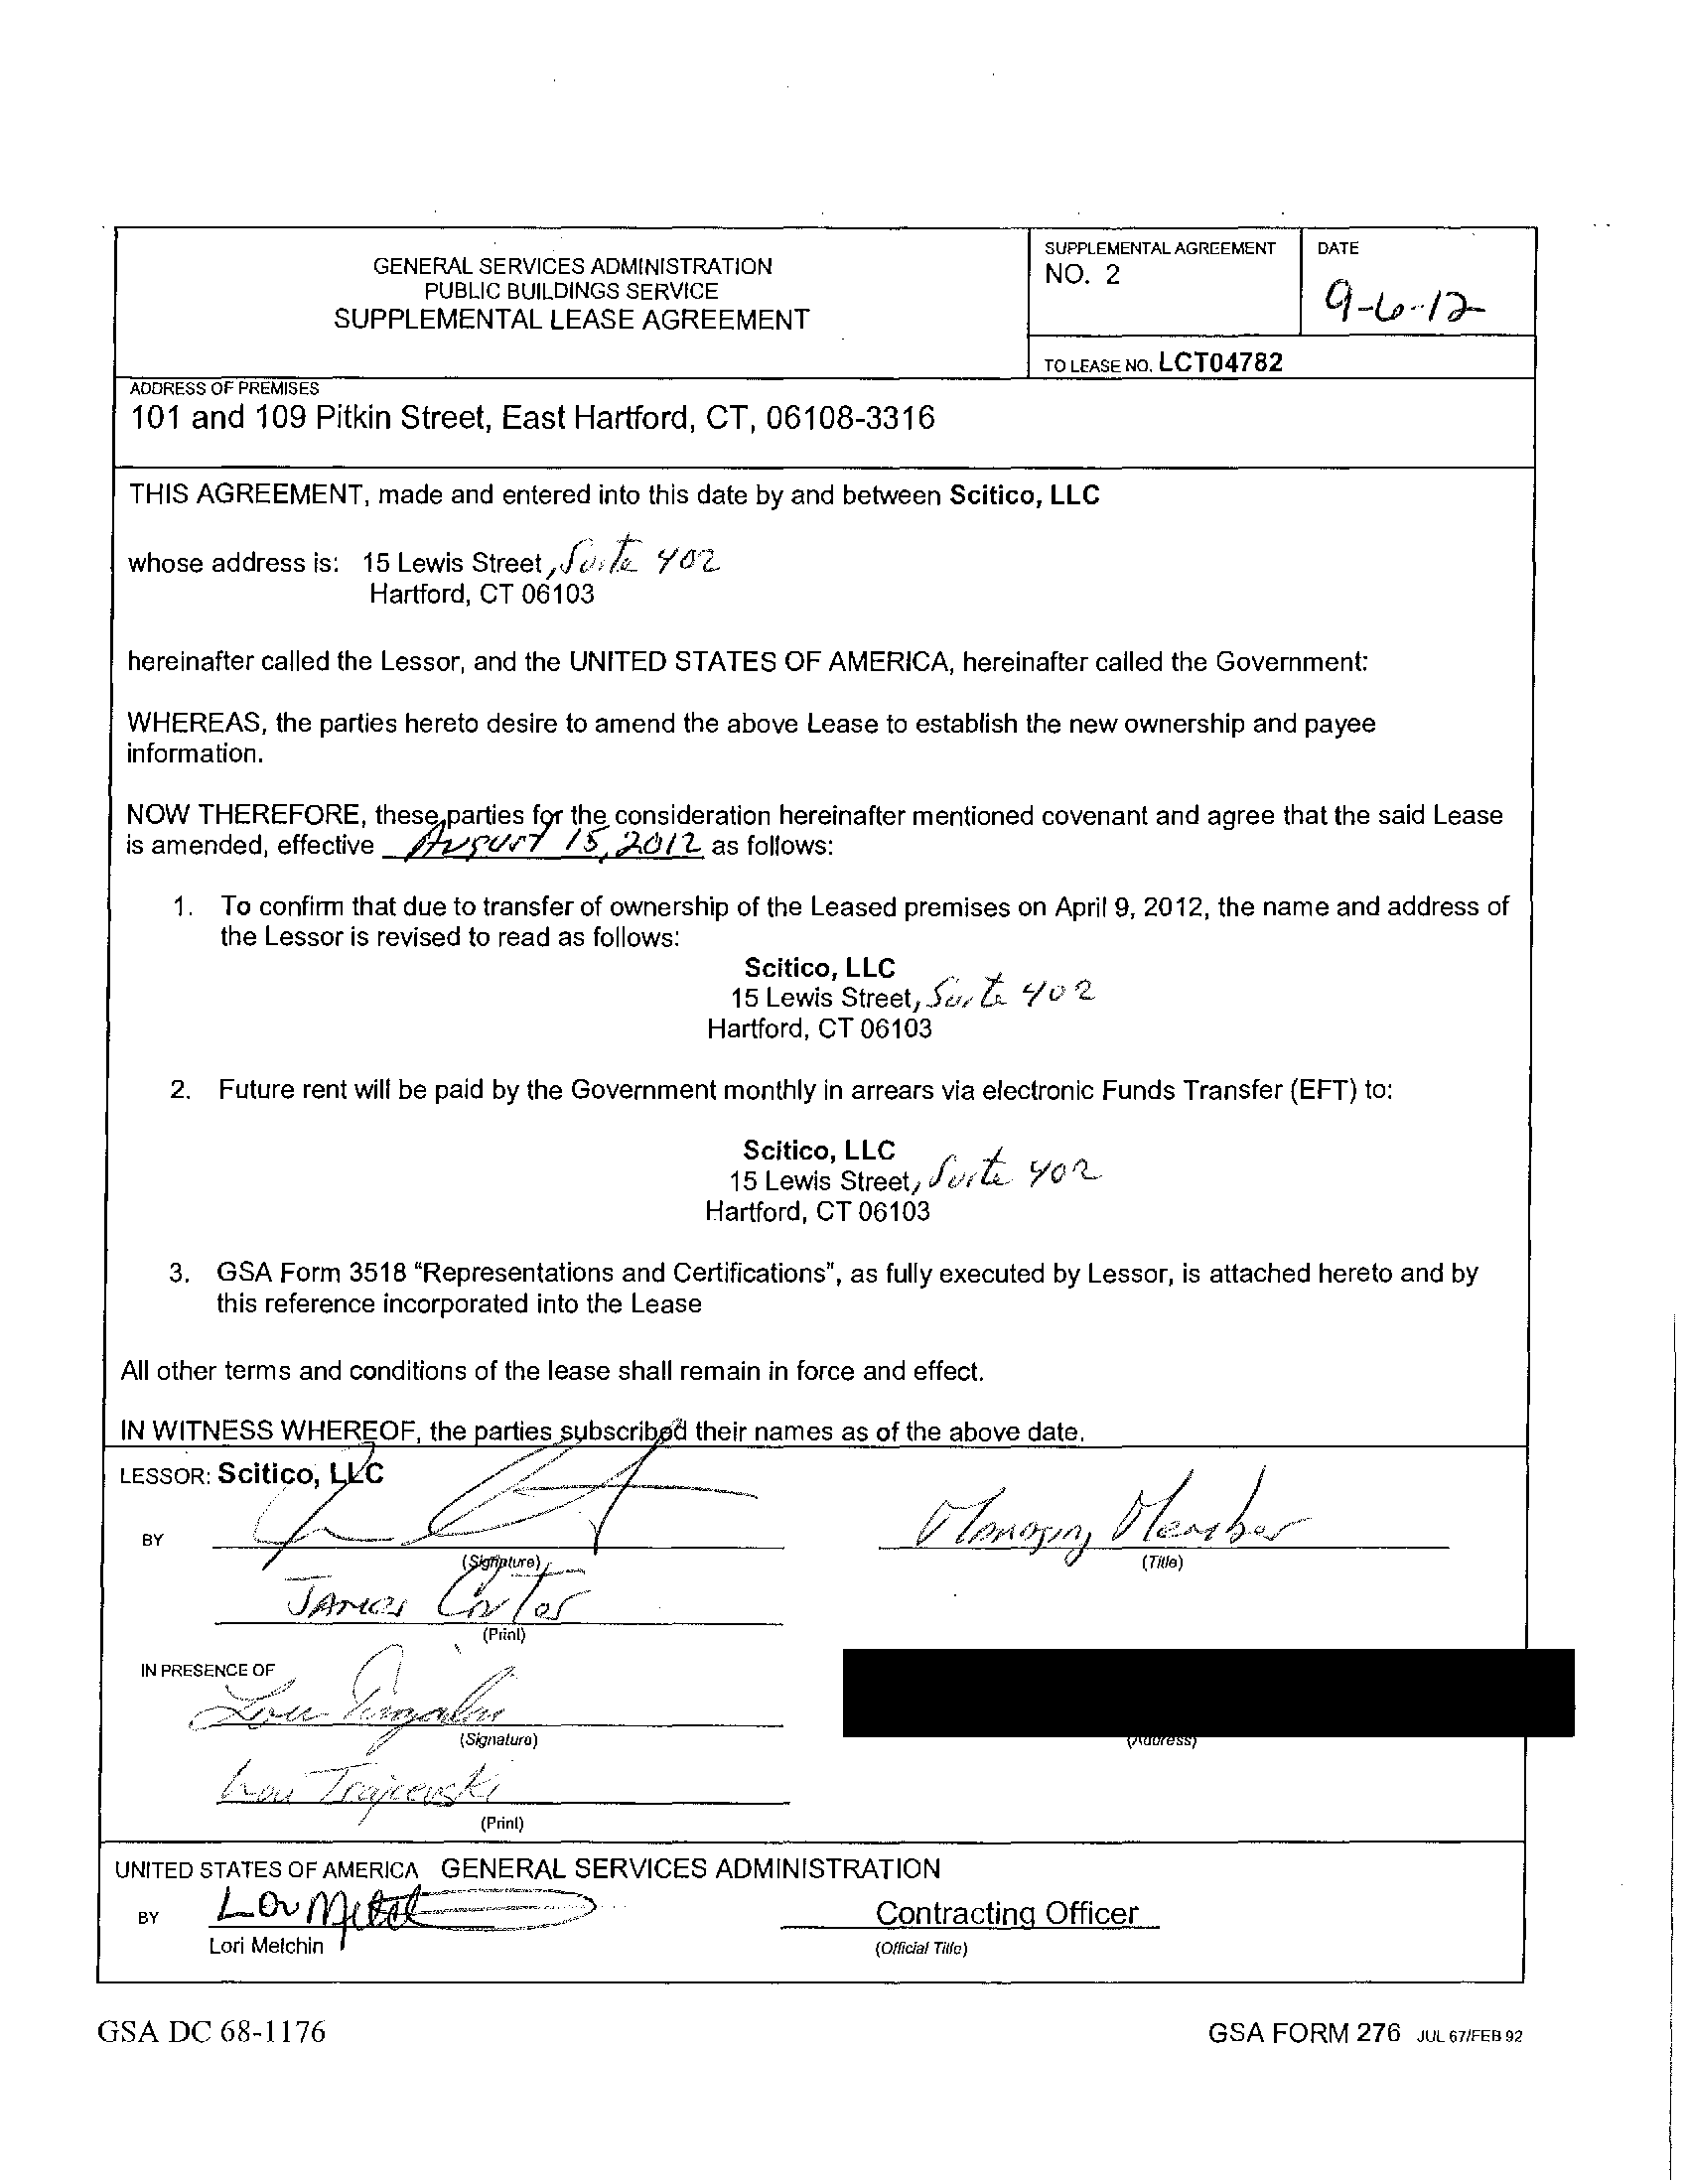 GENERAL SERVICES ADMINISTRATION
PUBLIC BUILDINGS SERVICE
SUPPLEMENTAL LEASE AGREEMENT
SUPPLEMENTAL AGREEMENT
NO. 2
DATE
9-6-12
TO LEASE NO. LCT04782
ADDRESS OF PREMISES
101 and 109 Pitkin Street, East Hartford, CT, 06108-3316
THIS AGREEMENT, made and entered into this date by and between Scitico, LLC
whose address is: 15 Lewis Street, Suite 402
Hartford, CT 06103
hereinafter called the Lessor, and the UNITED STATES OF AMERICA, hereinafter called the Government:
WHEREAS, the parties hereto desire to amend the above Lease to establish the new ownership and payee
information.
NOW THEREFORE, these parties for the consideration hereinafter mentioned covenant and agree that the said Lease
is amended, effective August 15, 2012 as follows:
1. To confirm that due to transfer of ownership of the Leased premises on April 9, 2012, the name and address of
the Lessor is revised to read as follows:
Scitico, LLC
15 Lewis Street, Suite 402
Hartford, CT 06103
2. Future rent will be paid by the Government monthly in arrears via electronic Funds Transfer (EFT) to:
Scitico, LLC
15 Lewis Street, Suite 402
Hartford, CT 06103
3. GSA Form 3518 "Representations and Certifications", as fully executed by Lessor, is attached hereto and by
this reference incorporated into the Lease
All other terms and conditions of the lease shall remain in force and effect.
IN WITNESS WHEREOF, the parties subscribed their names as of the above date.
LESSOR: Scitico, LLC
BY
Managing Member
(Signature)
(Title)
James
(Print)
IN PRESENCE OF
(Signature)
(Address)
Trajcevski
(Print)
UNITED STATES OF AMERICA GENERAL SERVICES ADMINISTRATION
BY
Contracting Officer
Lori Melchin
(Official Title)
GSA DC 68-1176
GSA FORM 276 JUL 67/FEB 92